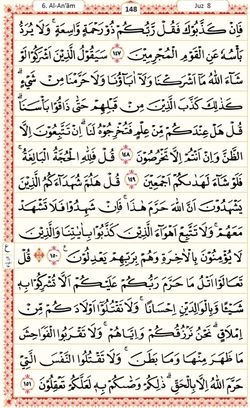 6. Al-An'ām 148 Juz 8
فَإِنْ كَذَّبُوكَ فَقُلْ رَبُّكُمْ ذُو رَحْمَةٍ وَاسِعَةٍ ۚ وَلَا يُرَدُّ
بَأْسُهُ عَنِ الْقَوْمِ الْمُجْرِمِينَ ١٤٧ سَيَقُولُ الَّذِينَ أَشْرَكُوا لَوْ
شَاءَ اللَّهُ مَا أَشْرَكْنَا وَلَا آبَاؤُنَا وَلَا حَرَّمْنَا مِنْ شَيْءٍ ۚ
كَذَٰلِكَ كَذَّبَ الَّذِينَ مِنْ قَبْلِهِمْ حَتَّىٰ ذَاقُوا بَأْسَنَا ۗ
قُلْ هَلْ عِنْدَكُمْ مِنْ عِلْمٍ فَتُخْرِجُوهُ لَنَا ۖ إِنْ تَتَّبِعُونَ إِلَّا
الظَّنَّ وَإِنْ أَنْتُمْ إِلَّا تَخْرُصُونَ ١٤٨ قُلْ فَلِلَّهِ الْحُجَّةُ الْبَالِغَةُ ۖ
فَلَوْ شَاءَ لَهَدَاكُمْ أَجْمَعِينَ ١٤٩ قُلْ هَلُمَّ شُهَدَاءَكُمُ الَّذِينَ
يَشْهَدُونَ أَنَّ اللَّهَ حَرَّمَ هَٰذَا ۖ فَإِنْ شَهِدُوا فَلَا تَشْهَدْ
مَعَهُمْ ۚ وَلَا تَتَّبِعْ أَهْوَاءَ الَّذِينَ كَذَّبُوا بِآيَاتِنَا وَالَّذِينَ
لَا يُؤْمِنُونَ بِالْآخِرَةِ وَهُمْ بِرَبِّهِمْ يَعْدِلُونَ ١٥٠ ۞ قُلْ
تَعَالَوْا أَتْلُ مَا حَرَّمَ رَبُّكُمْ عَلَيْكُمْ ۖ أَلَّا تُشْرِكُوا بِهِ
شَيْئًا ۖ وَبِالْوَالِدَيْنِ إِحْسَانًا ۖ وَلَا تَقْتُلُوا أَوْلَادَكُمْ مِنْ
إِمْلَاقٍ ۖ نَحْنُ نَرْزُقُكُمْ وَإِيَّاهُمْ ۖ وَلَا تَقْرَبُوا الْفَوَاحِشَ
مَا ظَهَرَ مِنْهَا وَمَا بَطَنَ ۖ وَلَا تَقْتُلُوا النَّفْسَ الَّتِي
حَرَّمَ اللَّهُ إِلَّا بِالْحَقِّ ۚ ذَٰلِكُمْ وَصَّاكُمْ بِهِ لَعَلَّكُمْ تَعْقِلُونَ ١٥١